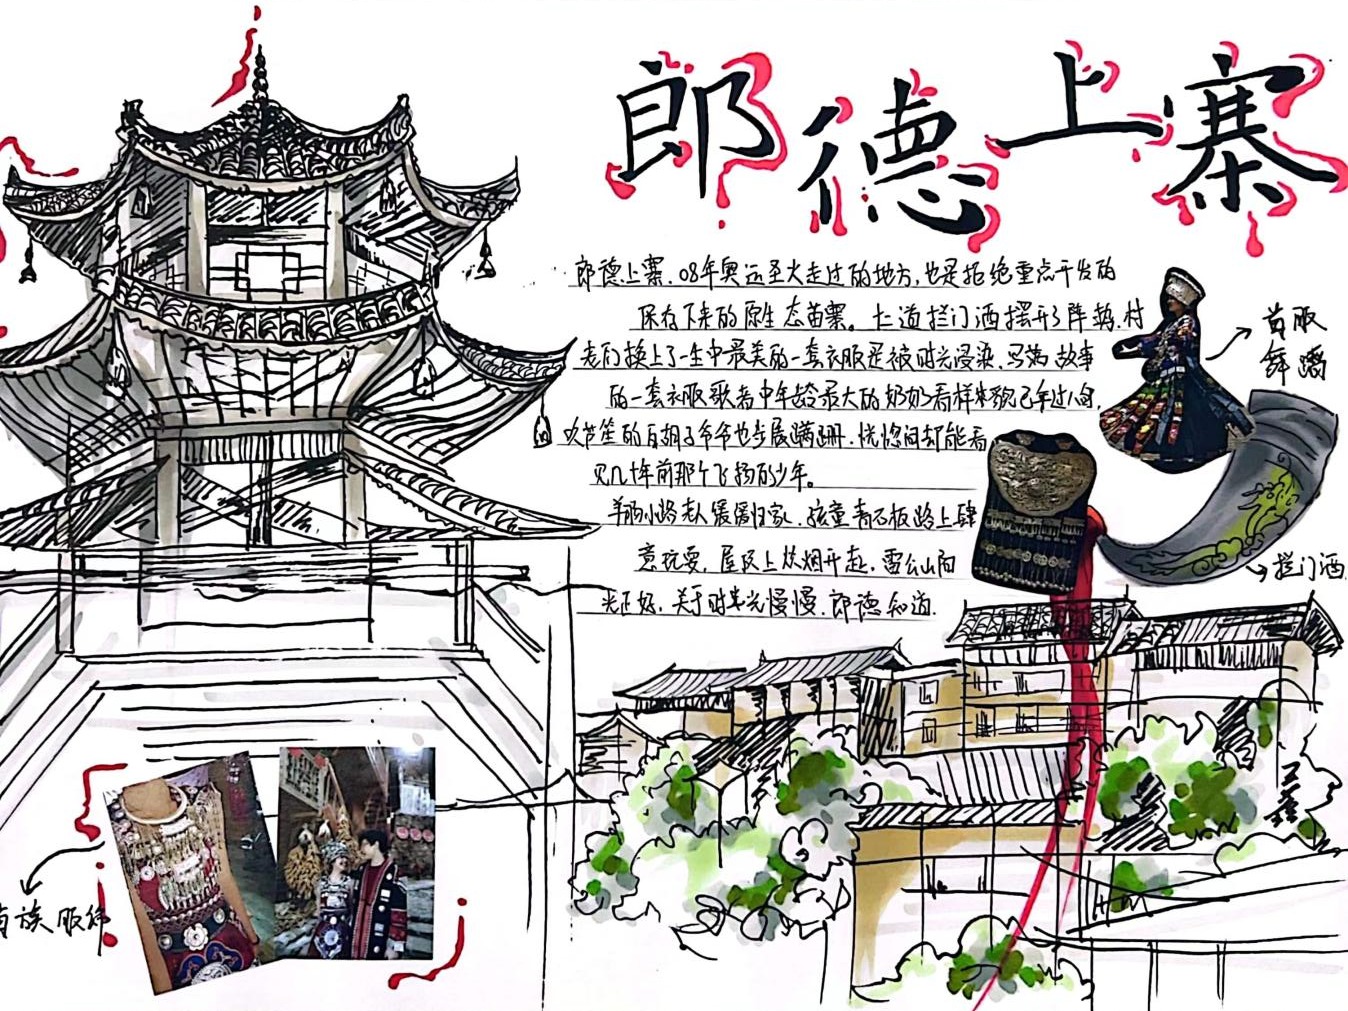 郎德上寨
郎德上寨，08年奥运圣火走过的地方，也是拒绝重点开发的
保存下来的原生态苗寨。七道拦门酒摆开了阵势，村
老们换上了一生中最美的一套衣服是被时光浸染，写满故事
的一套衣服歌者中年龄最大的奶奶看样貌已年过八旬，
吹芦笙的白胡子爷爷也步履蹒跚，恍惚间却能看
见几十年前那个飞扬的少年。
羊肠小路老人缓缓归家，孩童青石板路上肆
意玩耍，屋反上炊烟升起，雷公山阳
光正好，关于时光慢慢，郎德知道。
苗服
拦门酒
苗族服饰